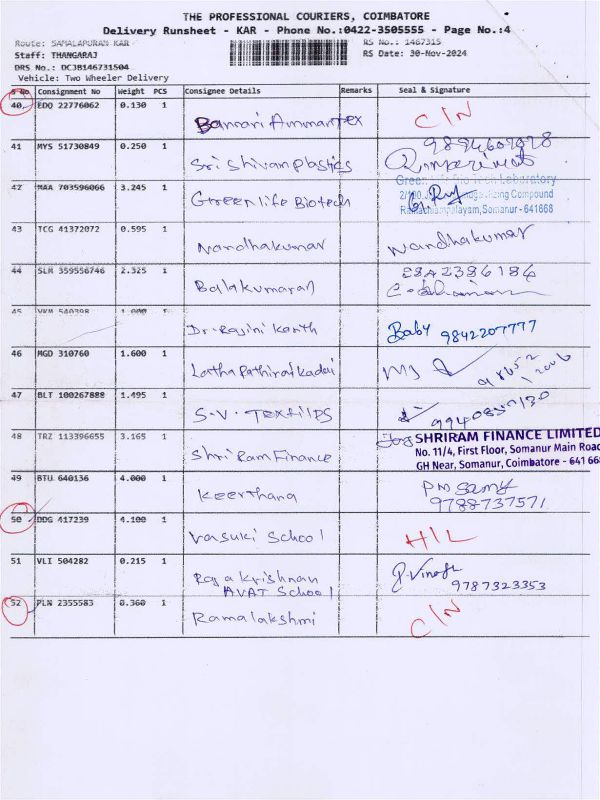 THE PROFESSIONAL COURIERS, COIMBATORE
Delivery Runsheet - KAR - Phone No.:0422-3505555 - Page No.:4
Route: SAMALAPURAM KAR RS No.: 1467315
Staff: THANGARAJ RS Date: 30-Nov-2024
DRS No.: DCJB146731504
Vehicle: Two Wheeler Delivery
S No Consignment No Weight PCS Consignee Details Remarks Seal & Signature
40 EDQ 22776062 0.130 1 Bannari Amman Tex C/N
41 MYS 51730849 0.250 1 Sri Shivam plastics
42 MAA 703596066 3.245 1 Green life Biotech
Somanur - 641668
43 TCG 41372072 0.595 1 Nandhakumar Nandhakumar
44 SLM 359556746 2.325 1 Balakumaran
45 VKM 540398 1.000 1 Dr. Rajini Kanth Baby 9842207777
46 MGD 310760 1.600 1 Latha Pathirakadai
47 BLT 100267888 1.495 1 S.V. Textiles
48 TRZ 113396655 3.165 1 Shri Ram Finance
SHRIRAM FINANCE LIMITED
No. 11/4, First Floor, Somanur Main Road
GH Near, Somanur, Coimbatore - 641 668
49 BTU 640136 4.000 1 Keerthana PM Samy
9788737571
50 DDG 417239 4.100 1 Vasuki School H/L
51 VLI 504282 0.215 1 Raja Krishnan P. Vinoth
AVAT School 9787323353
52 PLN 2355583 0.360 1 Ramalakshmi C/N